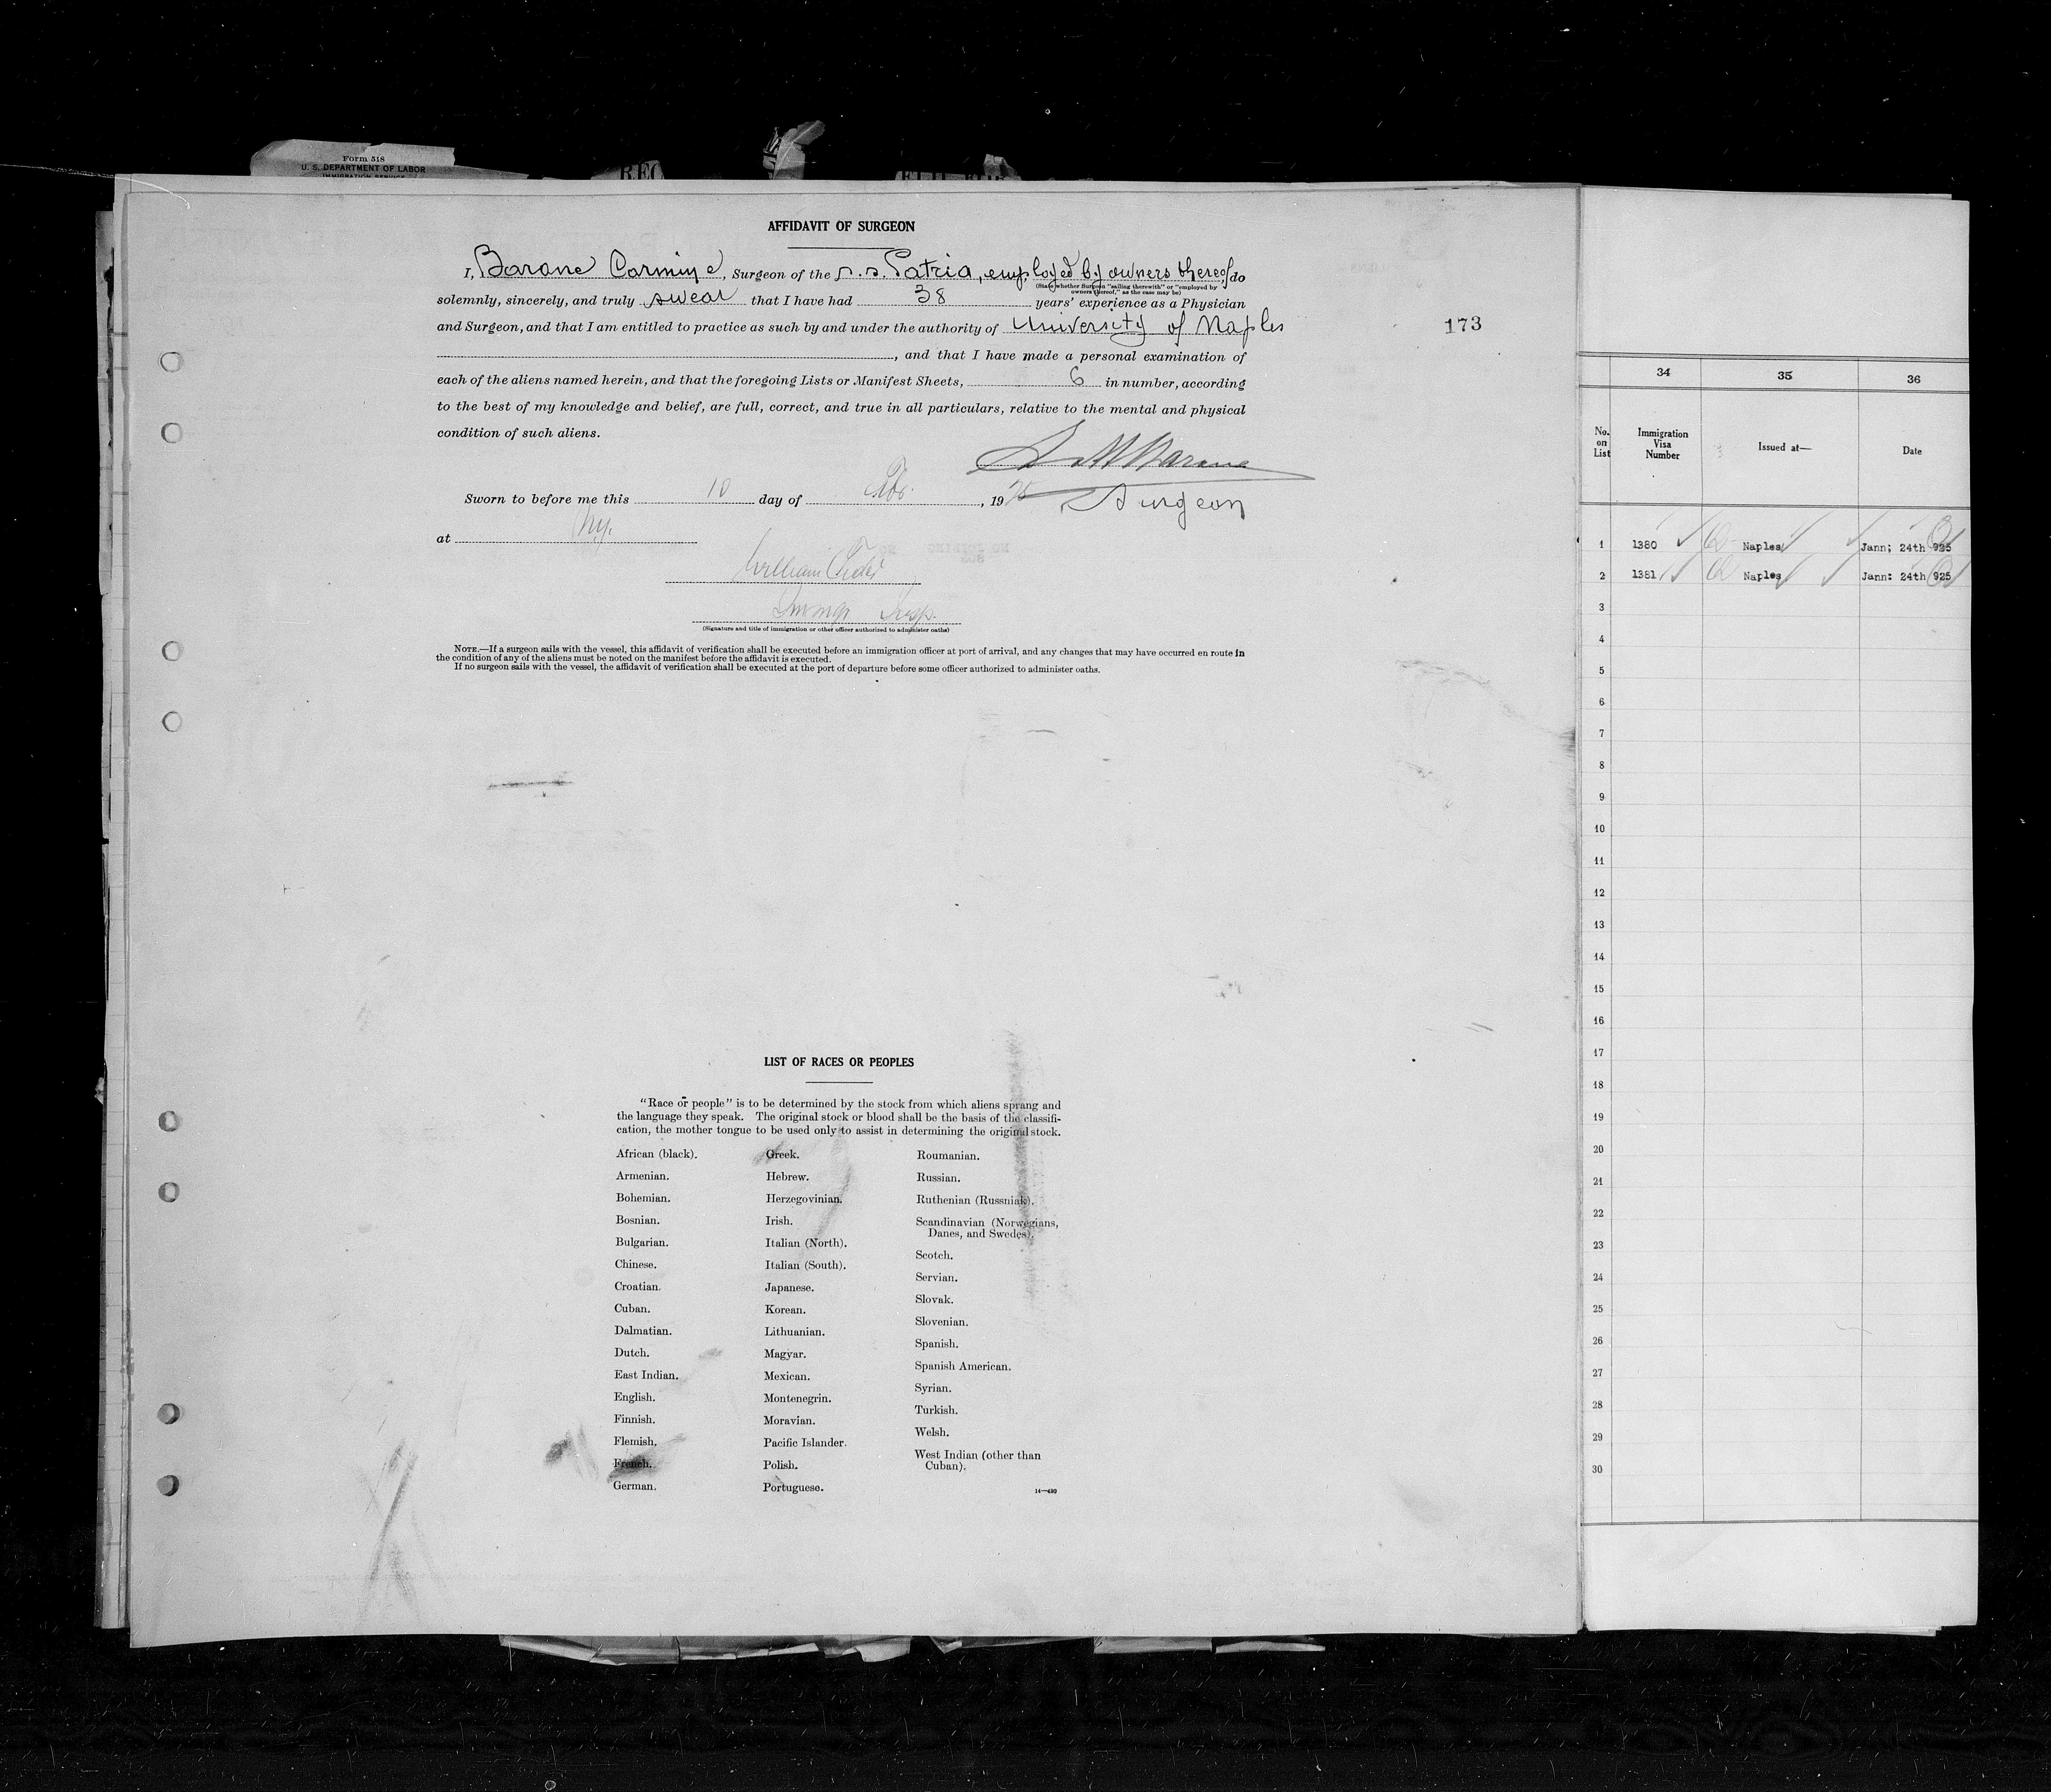 Form 518
U. S. DEPARTMENT OF LABOR
IMMIGRATION SERVICE
REC
AFFIDAVIT OF SURGEON
I, Barone Carmine, Surgeon of the s.s. Patria, employed by owners thereof, do
(State whether Surgeon "sailing therewith" or "employed by
owners thereof," as the case may be)
solemnly, sincerely, and truly swear that I have had 38 years' experience as a Physician
and Surgeon, and that I am entitled to practice as such by and under the authority of University of Naples
173
, and that I have made a personal examination of
each of the aliens named herein, and that the foregoing Lists or Manifest Sheets, 6 in number, according
to the best of my knowledge and belief, are full, correct, and true in all particulars, relative to the mental and physical
condition of such aliens.
Barone
Sworn to before me this 10 day of Feb., 1925
Surgeon
at N.Y.
William
Immgr Insp.
(Signature and title of immigration or other officer authorized to administer oaths)
NOTE.—If a surgeon sails with the vessel, this affidavit of verification shall be executed before an immigration officer at port of arrival, and any changes that may have occurred en route in
the condition of any of the aliens must be noted on the manifest before the affidavit is executed.
If no surgeon sails with the vessel, the affidavit of verification shall be executed at the port of departure before some officer authorized to administer oaths.
LIST OF RACES OR PEOPLES
"Race or people" is to be determined by the stock from which aliens sprang and
the language they speak. The original stock or blood shall be the basis of the classifi-
cation, the mother tongue to be used only to assist in determining the original stock.
African (black).
Armenian.
Bohemian.
Bosnian.
Bulgarian.
Chinese.
Croatian.
Cuban.
Dalmatian.
Dutch.
East Indian.
English.
Finnish.
Flemish.
French.
German.
Greek.
Hebrew.
Herzegovinian.
Irish.
Italian (North).
Italian (South).
Japanese.
Korean.
Lithuanian.
Magyar.
Mexican.
Montenegrin.
Moravian.
Pacific Islander.
Polish.
Portuguese.
Roumanian.
Russian.
Ruthenian (Russniak).
Scandinavian (Norwegians,
Danes, and Swedes).
Scotch.
Servian.
Slovak.
Slovenian.
Spanish.
Spanish American.
Syrian.
Turkish.
Welsh.
West Indian (other than
Cuban).
14—430
34 35 36
No. on List Immigration Visa Number Issued at— Date
1 1380 Naples Jann; 24th 925
2 1381 Naples Jann: 24th 925
3
4
5
6
7
8
9
10
11
12
13
14
15
16
17
18
19
20
21
22
23
24
25
26
27
28
29
30